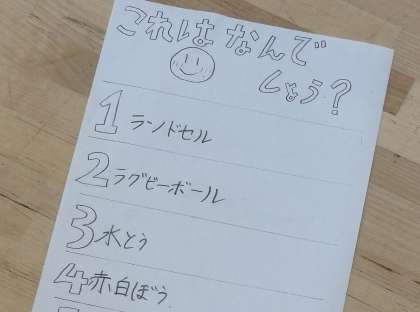 これはなんで
しょう?
1 ランドセル
2 ラグビーボール
3 水とう
4 赤白ぼう